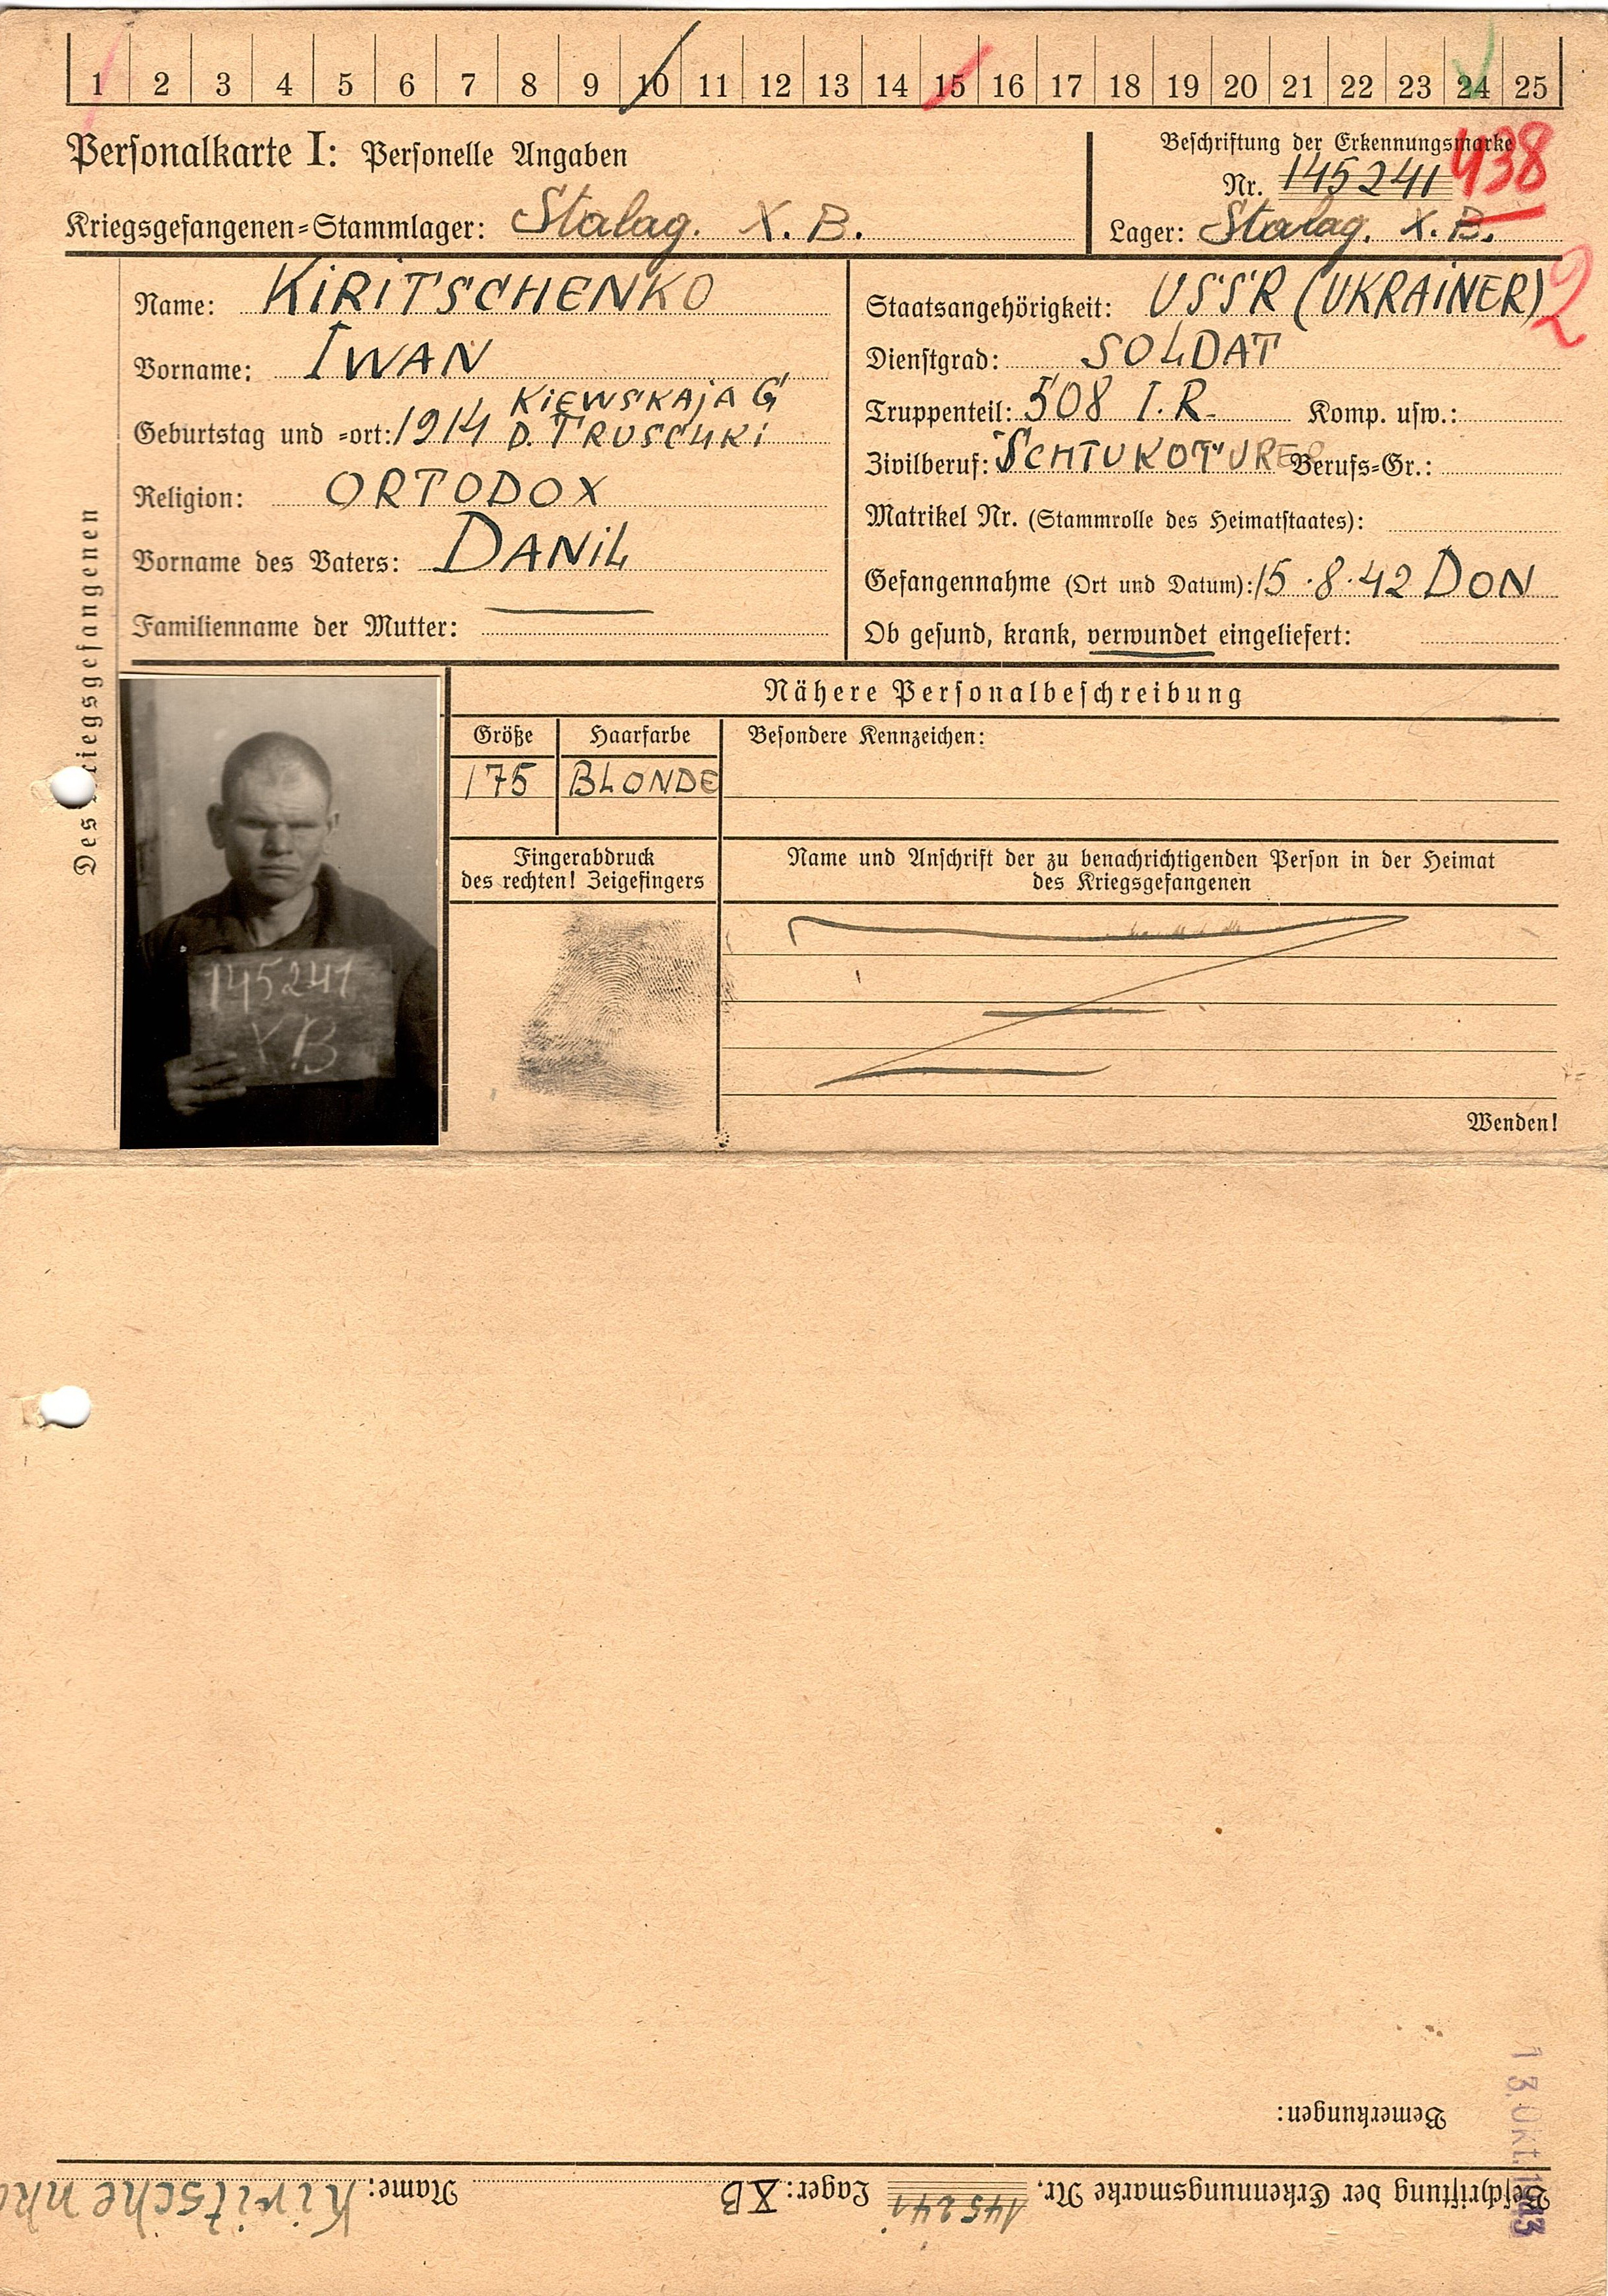 1 2 3 4 5 6 7 8 9 10 11 12 13 14 15 16 17 18 19 20 21 22 23 24 25
Personalkarte I: Personelle Angaben
Kriegsgefangenen-Stammlager: Stalag. X. B.
Beschriftung der Erkennungsmarke
Nr. 145241 438
Lager: Stalag. X. B.
2
Des Kriegsgefangenen
Name: KIRITSCHENKO
Vorname: IWAN
Geburtstag und -ort: 1914 KIEWSKAJA G
D. TRUSCHKI
Religion: ORTODOX
Vorname des Vaters: DANIL
Familienname der Mutter:
Staatsangehörigkeit: USSR (UKRAINER)
Dienstgrad: SOLDAT
Truppenteil: 508 I. R. Komp. usw.:
Zivilberuf: SCHTUKOTURER Berufs-Gr.:
Matrikel Nr. (Stammrolle des Heimatstaates):
Gefangennahme (Ort und Datum): 15.8.42 DON
Ob gesund, krank, verwundet eingeliefert:
145241
XB
Nähere Personalbeschreibung
Größe Haarfarbe Besondere Kennzeichen:
175 BLONDE
Fingerabdruck
des rechten! Zeigefingers
Name und Anschrift der zu benachrichtigenden Person in der Heimat
des Kriegsgefangenen
Wenden!
Bemerkungen:
13. Okt. 1943
Beschriftung der Erkennungsmarke Nr. 145241 Lager: XB Name: Kiritschenko